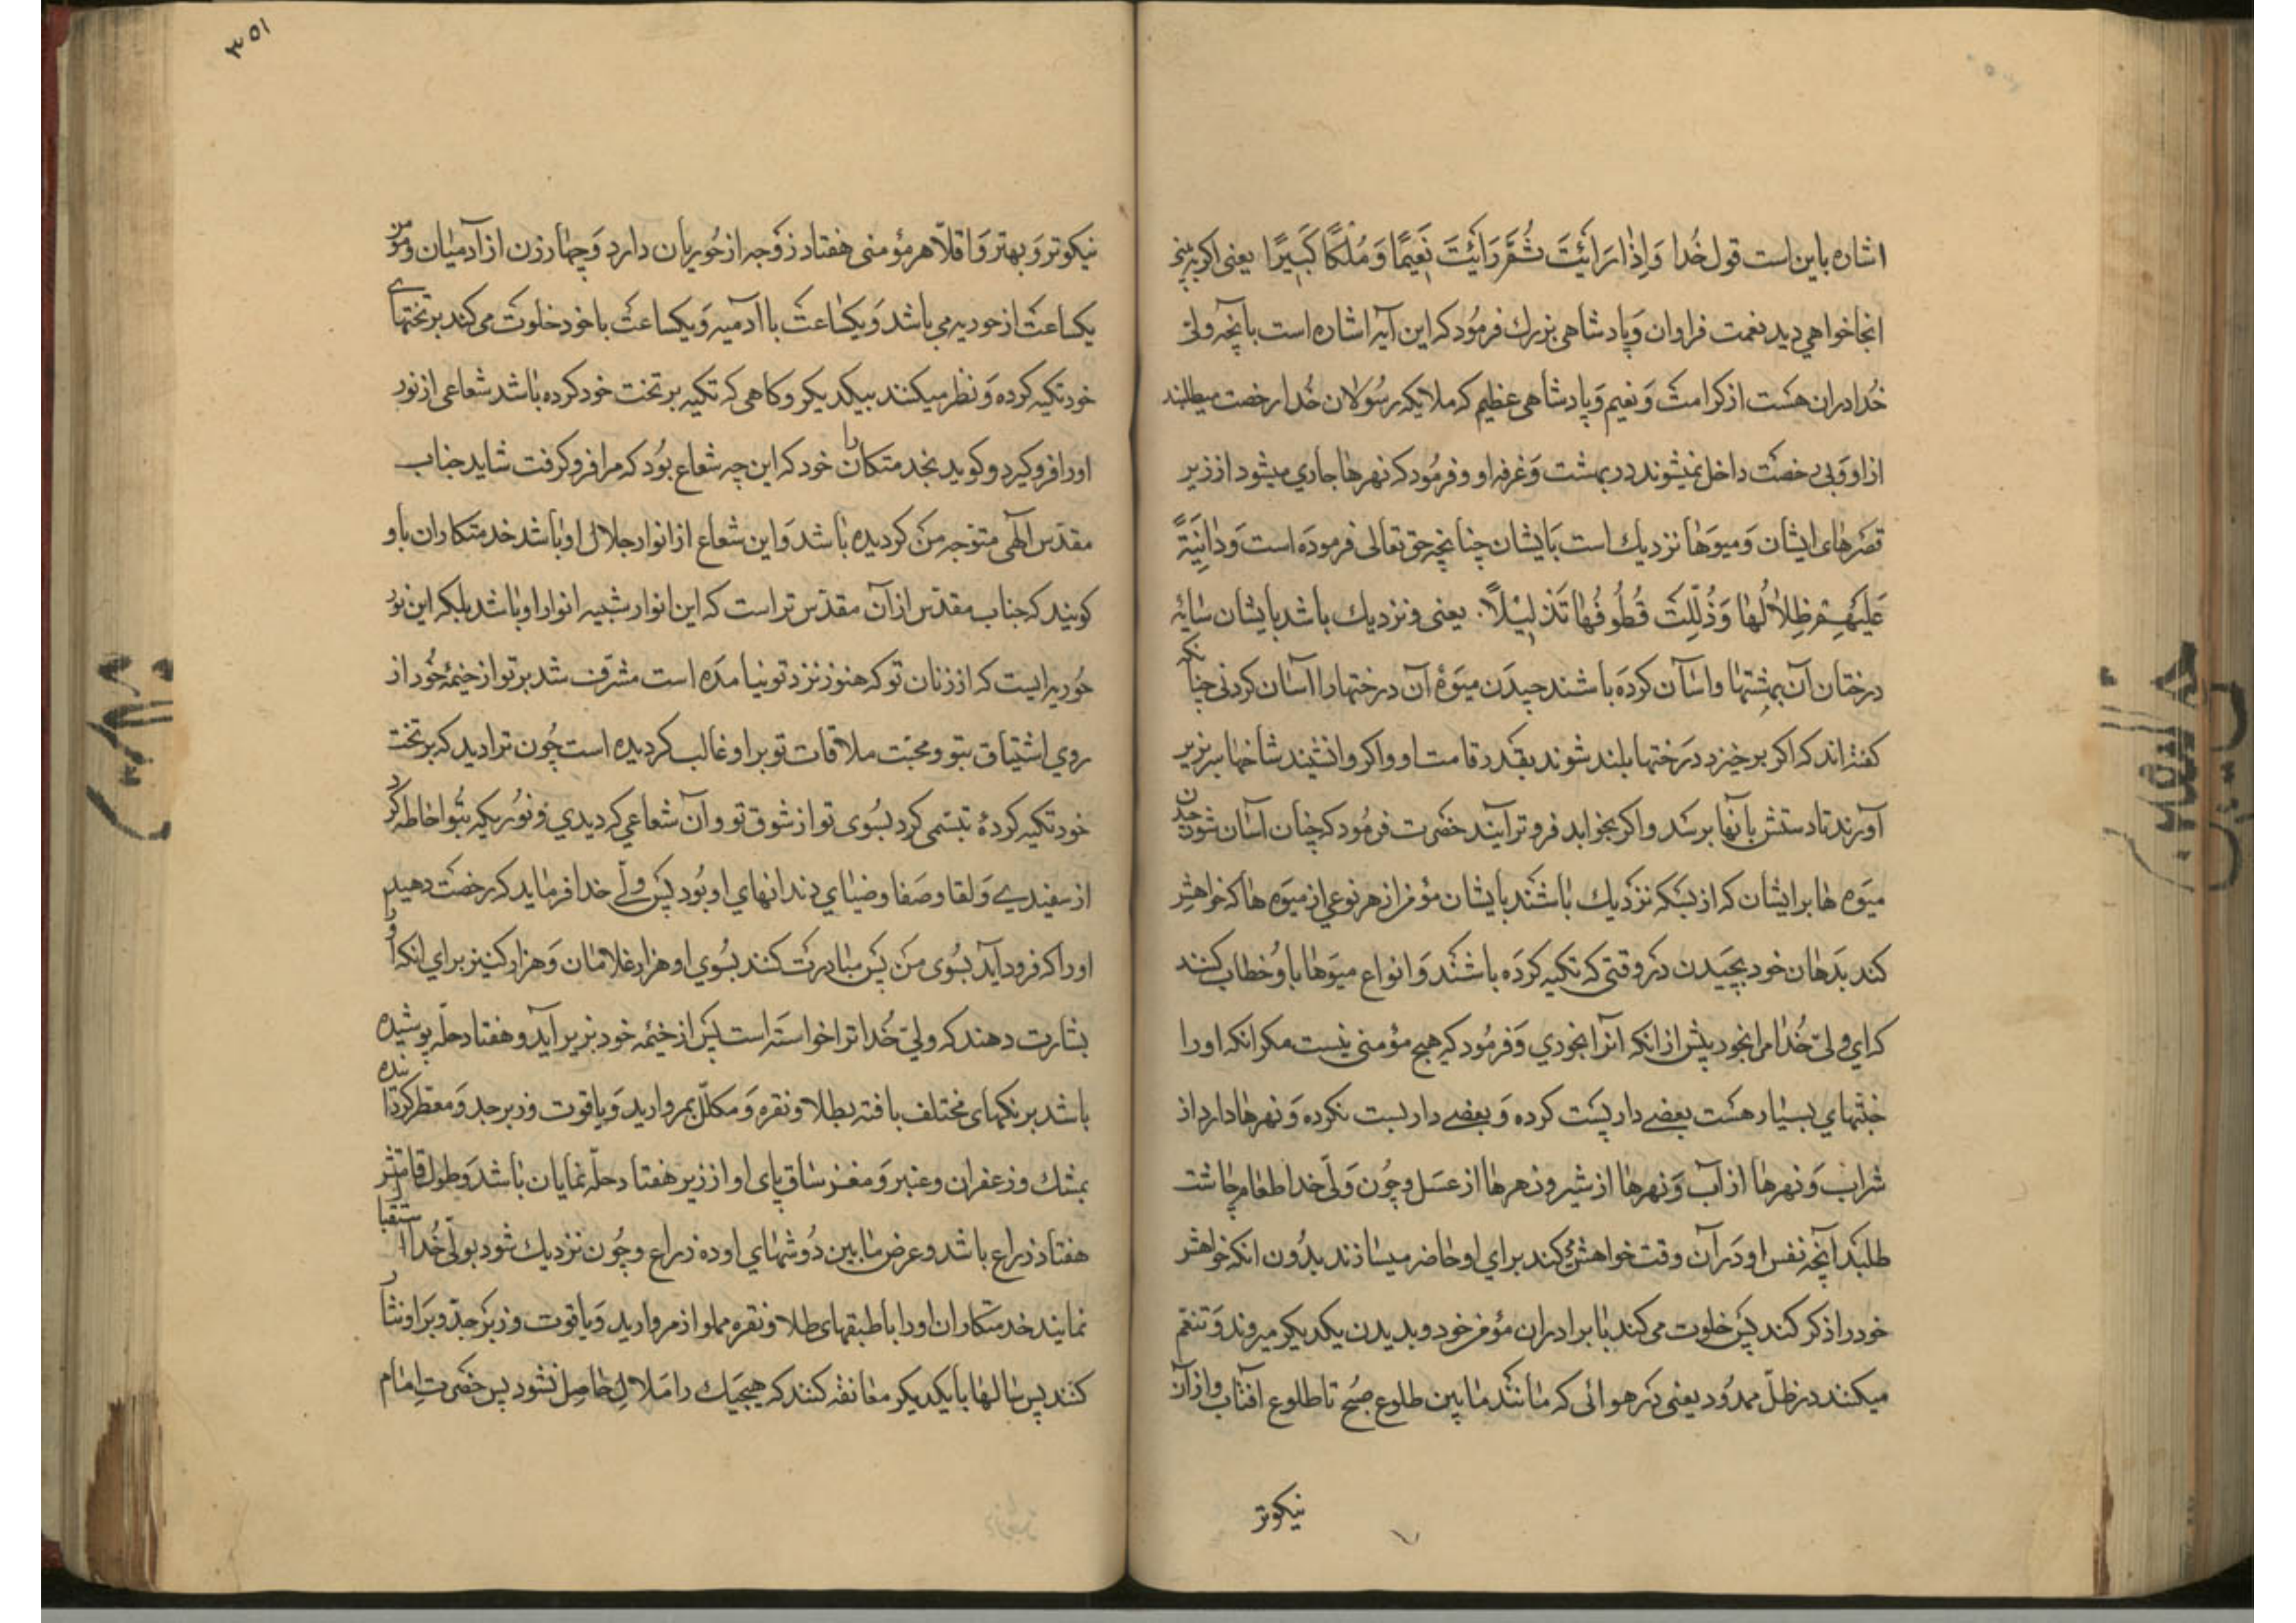 اشاره باین است قول خُدا وَاِذٰا رَاَیْتَ ثُمَّ رَاَیْتَ نَعِیْمًا وَمُلْکًا کَبِیْرًا یعنی اکر به بینی
انجا خواهی دید نعمت فراوان وَپادشاهی بزرك فرمُود که این آیه اشاره است بانچه ولیّ
خُدا دران هست از کرامت وَنعیم وَپادشاهی عظیم که ملایکه رسُولان خُدا رخصت میطلبند
از او وَبی رخصت داخل نمیشوند در بهشت وَغرفه او وفرمُود که نهرها جاری میشود از زیر
قصرهای ایشان وَمیوَها نزدیك است بَایشان چنانچه حق تعالی فرمودَه است وَدٰانِیَةً
عَلَیْهِمْ ظِلاٰلُهٰا وَذُلِّلَتْ قُطُوفُهٰا تَذْلِیْلاً یعنی ونزدیك باشد بایشان سٰایه
درختان آن بهشتها واسٰان کردَه باشند چیدن میوَۀ آن درختها را اسٰان کردنی چنانکه
کفته اند که اکر بر خیزد دَرختها بلند شوند بقدر قامت او واکر وا نشیند شاخها سر بزیر
آورند تا دستش بانها برسَد واکر بخوابد فروتر آیند حضرت فرمُود که چنان اسٰان شود چیدن
میوَه ها بر ایشان که از بسکه نزدیك باشند بایشان مؤمن از هر نوعی از میوَه ها که خواهش
کند بَدهان خود بچیَدن دَر وقتی که تکیه کردَه باشند وَانواع میوَها باو خطاب کنند
که ای ولیّ خُدا مرا بخور پیش از انکه انرا بخوری وَفرمُود که هیچ مؤمنی نیست مکر انکه اورا
جنّتهای بسیٰار هست بعضی دار بست کرده وَبعضی دار بست نکرده وَنهرها دارد از
شراب وَنهرها از آب وَنهرها از شیر ونهرها از عسَل وچُون وَلیّ خدا طعام چاشت
طلبَد انچه نفس او دَر آن وقت خواهش میکند برای او حاضر میسازند بدُون انکه خواهش
خود را ذکر کند پس خلوت می کند با برادران مؤمن خود وبدیدن یکدیکر میروند وَتنعّم
میکنند در ظلّ ممدُود یعنی دَر هوائی که مٰانند مٰا بین طلوع صُبح تا طلوع افتٰاب واز آن
نیکوتر
۳۵۱
نیکوتر وَبهتر وَاقلاّ هر مؤمنی هفتاد زَوجه از حُوریان دارد وَچهٰار زن از آدمیٰان ومؤمن
یکساعت از حوریه می باشد وَیکسٰاعت با ادمیه وَیکساعت با خود خلوت می کند بر تختهای
خود تکیه کرده وَنظر میکنند بیکدیکر وکاهی که تکیه بر تخت خود کرده بٰاشد شعاعی از نور
اورا فرو کیرد وکوید بخدمتکاران خود که این چه شعاع بوُد که مرا فرو کرفت شاید جناب
مقدّس الٓهی متوَجه مَن کردیده بٰاشد وَاین شعاع از انوار جلال او بٰاشد خدمتکاران باو
کویند که جناب مقدّس از آن مقدّس تر است که این انوار شبیه انوار او بٰاشد بلکه این نور
حُوریه ایست که از زنان تو که هنوز نزد تو نیامدَه است مشرّف شد بر تو از خیمۀ خُود از
روی اشتیاق بتو ومحبّت ملاقات تو بر او غالب کردیده است چُون ترا دید که بر تخت
خود تکیه کردۀ تبسّمی کرد بسُوی تو از شوق تو وآن شعاعی که دیدی ونوُریکه بتُو احاطه کرد
از سفیدی وَلقا وصَفا وضیٰای دندانهای او بوُد پس ولیّ خدا فرمٰاید که رخصت دهید
اورا که فرود اید بسُوی مَن پس مبٰادرت کنند بسُوی او هزار غلامٰان وَهزار کنیز برای انکه اورا
بشارت دهند که ولیّ خُدا ترا خواستَه است پس از خیمَه خود بزیر آید وهفتاد حلّه پوشیده
باشد برنکهای مختلف بافته بطلا ونقره وَمکلّل بمروارید وَیاقوت وزبرجد وَمعطر کردانده
بمشك وزعفران وعنبر وَمغز سٰاق پای او از زیر هفتاد حلّه نمایان بٰاشد وَطول قامتش
هفتاد ذراع باشد وعرض مٰا بین دُوشهٰای او ده ذراع وچُون نزدیك شود بولیّ خُدا استقبا
نمایند خدمتکاران اورا باطبقهای طلا ونقره مملو از مروارید وَیاقوت وزبَرجد وبَر او نثار
کنند پس سالها بایکدیکر معٰانقه کنند که هیچیَك را مَلالِ حٰاصِل نشود پس حضرت اِمٰام